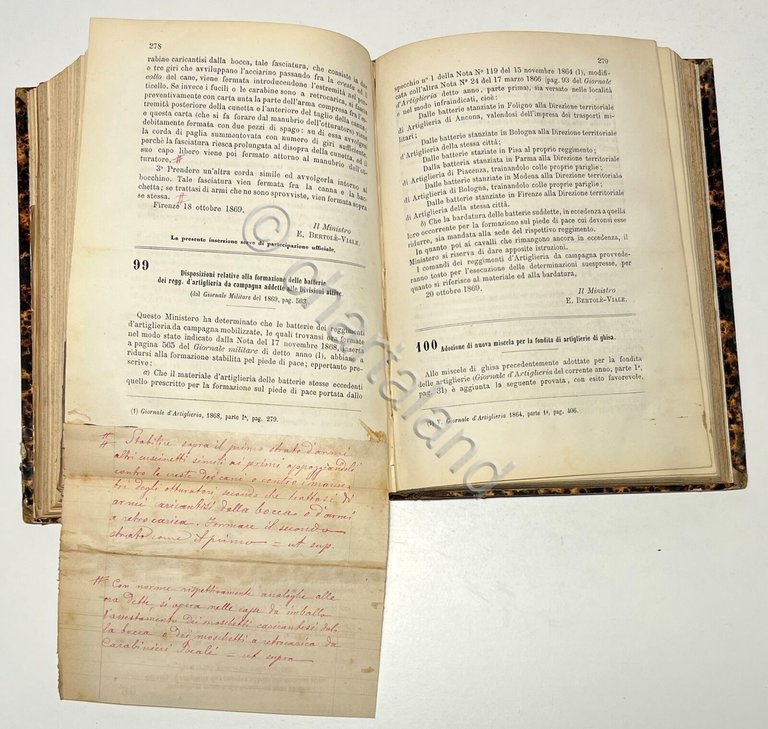 278
rabine caricantisi dalla bocca, tale fasciatura, che consiste in due
o tre giri che avviluppano l'acciarino passando fra la cresta ed il
collo del cane, viene fermata introducendone l'estremità nel pon-
ticello. Se invece i fucili o le carabine sono a retrocarica, si fascia
preventivamente con carta unta la parte dell'arma compresa fra l'es-
tremità posteriore della cunetta e l'anteriore del taglio della canna;
e questa carta (che si fa forare dal manubrio dell'otturatore) viene
debitamente fermata con due pezzi di spago: su di essa avvolgesi
la corda di paglia summentovata con numero di giri sufficiente,
perchè la fasciatura riesca prolungata al disopra della cunetta, ed il
suo capo libero viene poi fermato attorno al manubrio dell'ot-
turatore. #
3° Prendere un'altra corda simile ed avvolgerla intorno al
bocchino. Tale fasciatura vien fermata fra la canna e la bac-
chetta; se trattasi di armi che ne sono sprovviste, vien fermata sopra
se stessa. #
Firenze 18 ottobre 1869.
Il Ministro
E. BERTOLÈ-VIALE.
La presente inserzione serve di partecipazione ufficiale.
99
Disposizioni relative alla formazione delle batterie
dei regg. d'artiglieria da campagna addette alle Divisioni attive
(dal Giornale Militare del 1869, pag. 563)
Questo Ministero ha determinato che le batterie dei reggimenti
d'artiglieria da campagna mobilizzate, le quali trovansi ora formate
nel modo stato indicato dalla Nota del 17 novembre 1868, inserta
a pagina 565 del Giornale militare di detto anno (1), abbiano a
ridursi alla formazione stabilita pel piede di pace; eppertanto pre-
scrive:
a) Che il materiale d'artiglieria delle batterie stesse eccedenti
quello prescritto per la formazione sul piede di pace portata dallo
(1) Giornale d'Artiglieria, 1868, parte 1ª, pag. 279.
# Stabilire sopra il primo strato d'armi
altri cuscinetti simili ai primi appoggiandoli
contro le creste dei cani o contro i manu-
bri degli otturatori, secondo che trattasi di
armi caricantisi dalla bocca o d'armi
a retrocarica. Formare il secondo
strato come il primo = ut sup.
# Con norme rispettivamente analoghe alle
ora dette, si opera nelle casse da imballo
l'assestamento dei moschetti caricantesi dal-
la bocca o dei moschetti a retrocarica da
Carabinieri Reali = ut supra
279
specchio n° 1 della Nota N° 119 del 15 novembre 1864 (1), modifi-
cata coll'altra Nota N° 24 del 17 marzo 1866 (pag. 93 del Giornale
d'Artiglieria detto anno, parte prima), sia versato nelle località
e nel modo infraindicati, cioè:
Dalle batterie stanziate in Foligno alla Direzione territoriale
di Artiglieria di Ancona, valendosi dell'impresa dei trasporti mi-
litari;
Dalle batterie stanziate in Bologna alla Direzione territoriale
d'Artiglieria della stessa città;
Dalle batterie staziate in Pisa al proprio reggimento;
Dalla batteria stanziata in Parma alla Direzione territoriale
di Artiglieria di Piacenza, trainandolo colle proprie pariglie;
Dalle batterie stanziate in Modena alla Direzione territoriale
di Artiglieria di Bologna, trainandolo colle proprie pariglie;
Dalle batterie stanziate in Firenze alla Direzione territoriale
di Artiglieria della stessa città.
b) Che la bardatura delle batterie suddette, in eccedenza a quella
loro occorrente per la formazione sul piede di pace cui devonsi esse
ridurre, sia mandata alla sede del rispettivo reggimento.
In quanto poi ai cavalli che rimangono ancora in eccedenza, il
Ministero si riserva di dare apposite istruzioni.
I comandi dei reggimenti d'Artiglieria da campagna provvede-
ranno tosto per l'esecuzione delle determinazioni suespresse, per
quanto si riferisce al materiale ed alla bardatura.
20 ottobre 1869.
Il Ministro
E. BERTOLÈ-VIALE.
100 Adozione di nuova miscela per la fondita di artiglierie di ghisa.
Alle miscele di ghisa precedentemente adottate per la fondita
delle artiglierie (Giornale d'Artiglieria del corrente anno, parte 1ª,
pag. 31) è aggiunta la seguente provata, con esito favorevole,
(1) V. Giornale d'Artiglieria 1864, parte 1ª, pag. 406.
© chartaland